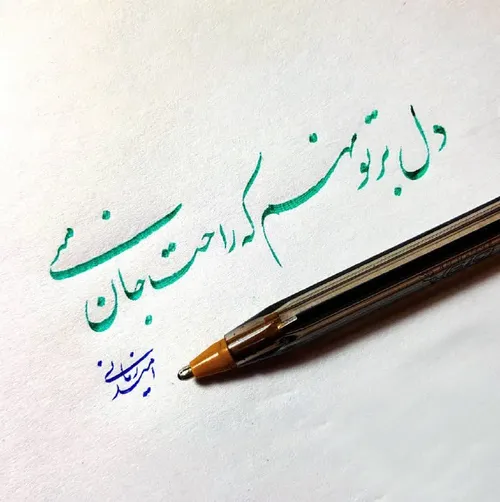 دل بر تو نهم که راحت جان منی
امید زمانی